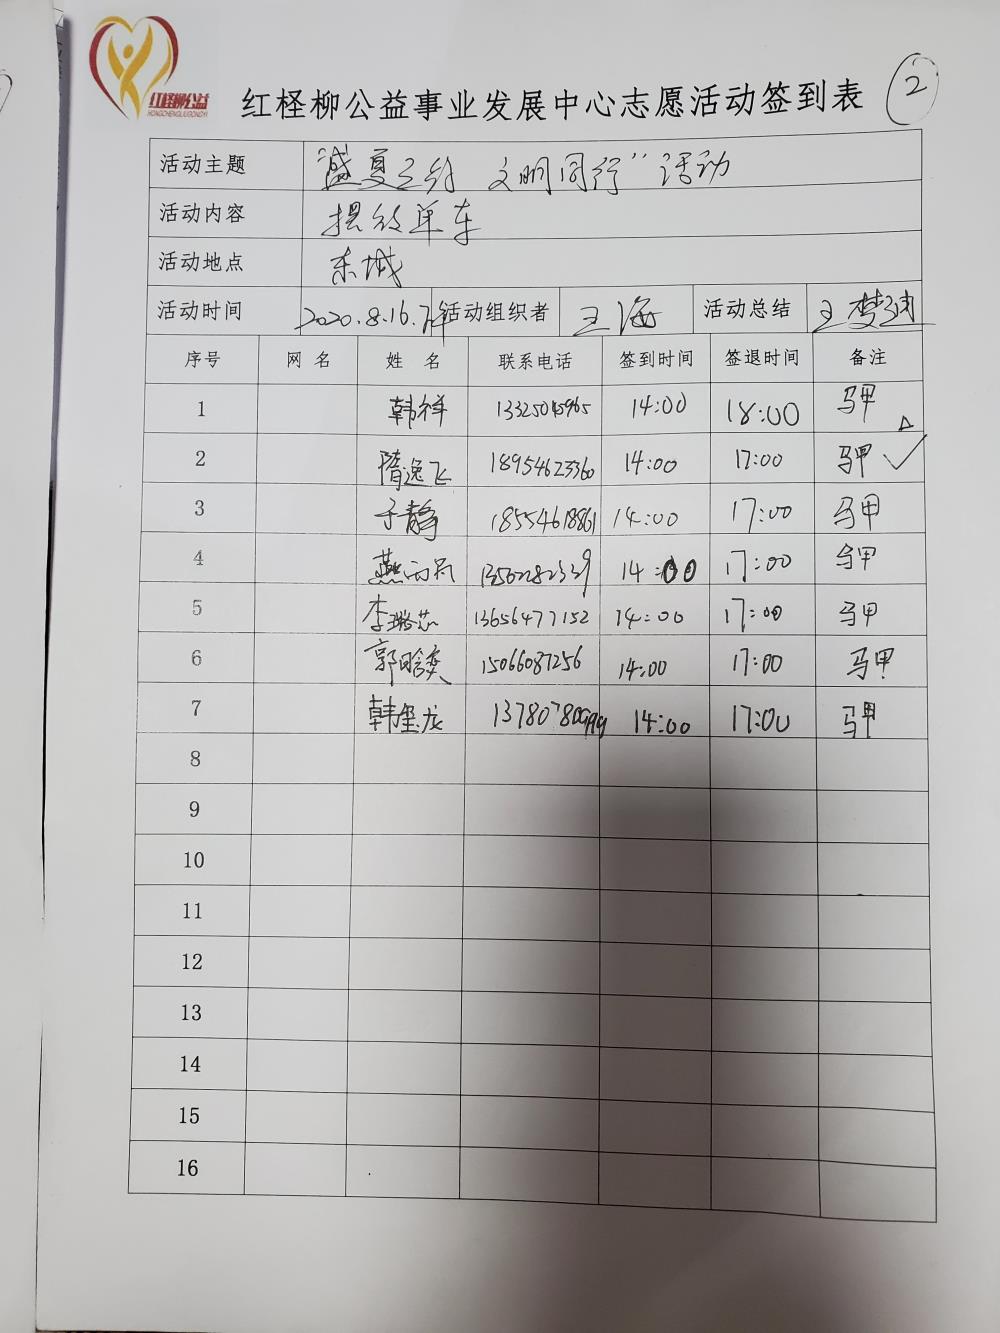 红柽柳公益
HONGCHENGLIUGONGYI
红柽柳公益事业发展中心志愿活动签到表
2
活动主题 "盛夏之约 文明同行"活动
活动内容 摆放单车
活动地点 东城
活动时间 2020.8.16.下午 活动组织者 王海 活动总结 王梦迪
序号 网 名 姓 名 联系电话 签到时间 签退时间 备注
1 韩祥 14:00 18:00 马甲
2 隋逸飞 18954623360 14:00 17:00 马甲 ✓
3 于静 18554618861 14:00 17:00 马甲
4 燕 13562282339 14:00 17:00 马甲
5 李璐芯 13656477152 14:00 17:00 马甲
6 郭晗奕 15066087256 14:00 17:00 马甲
7 韩奎龙 13780780999 14:00 17:00 马甲
8
9
10
11
12
13
14
15
16